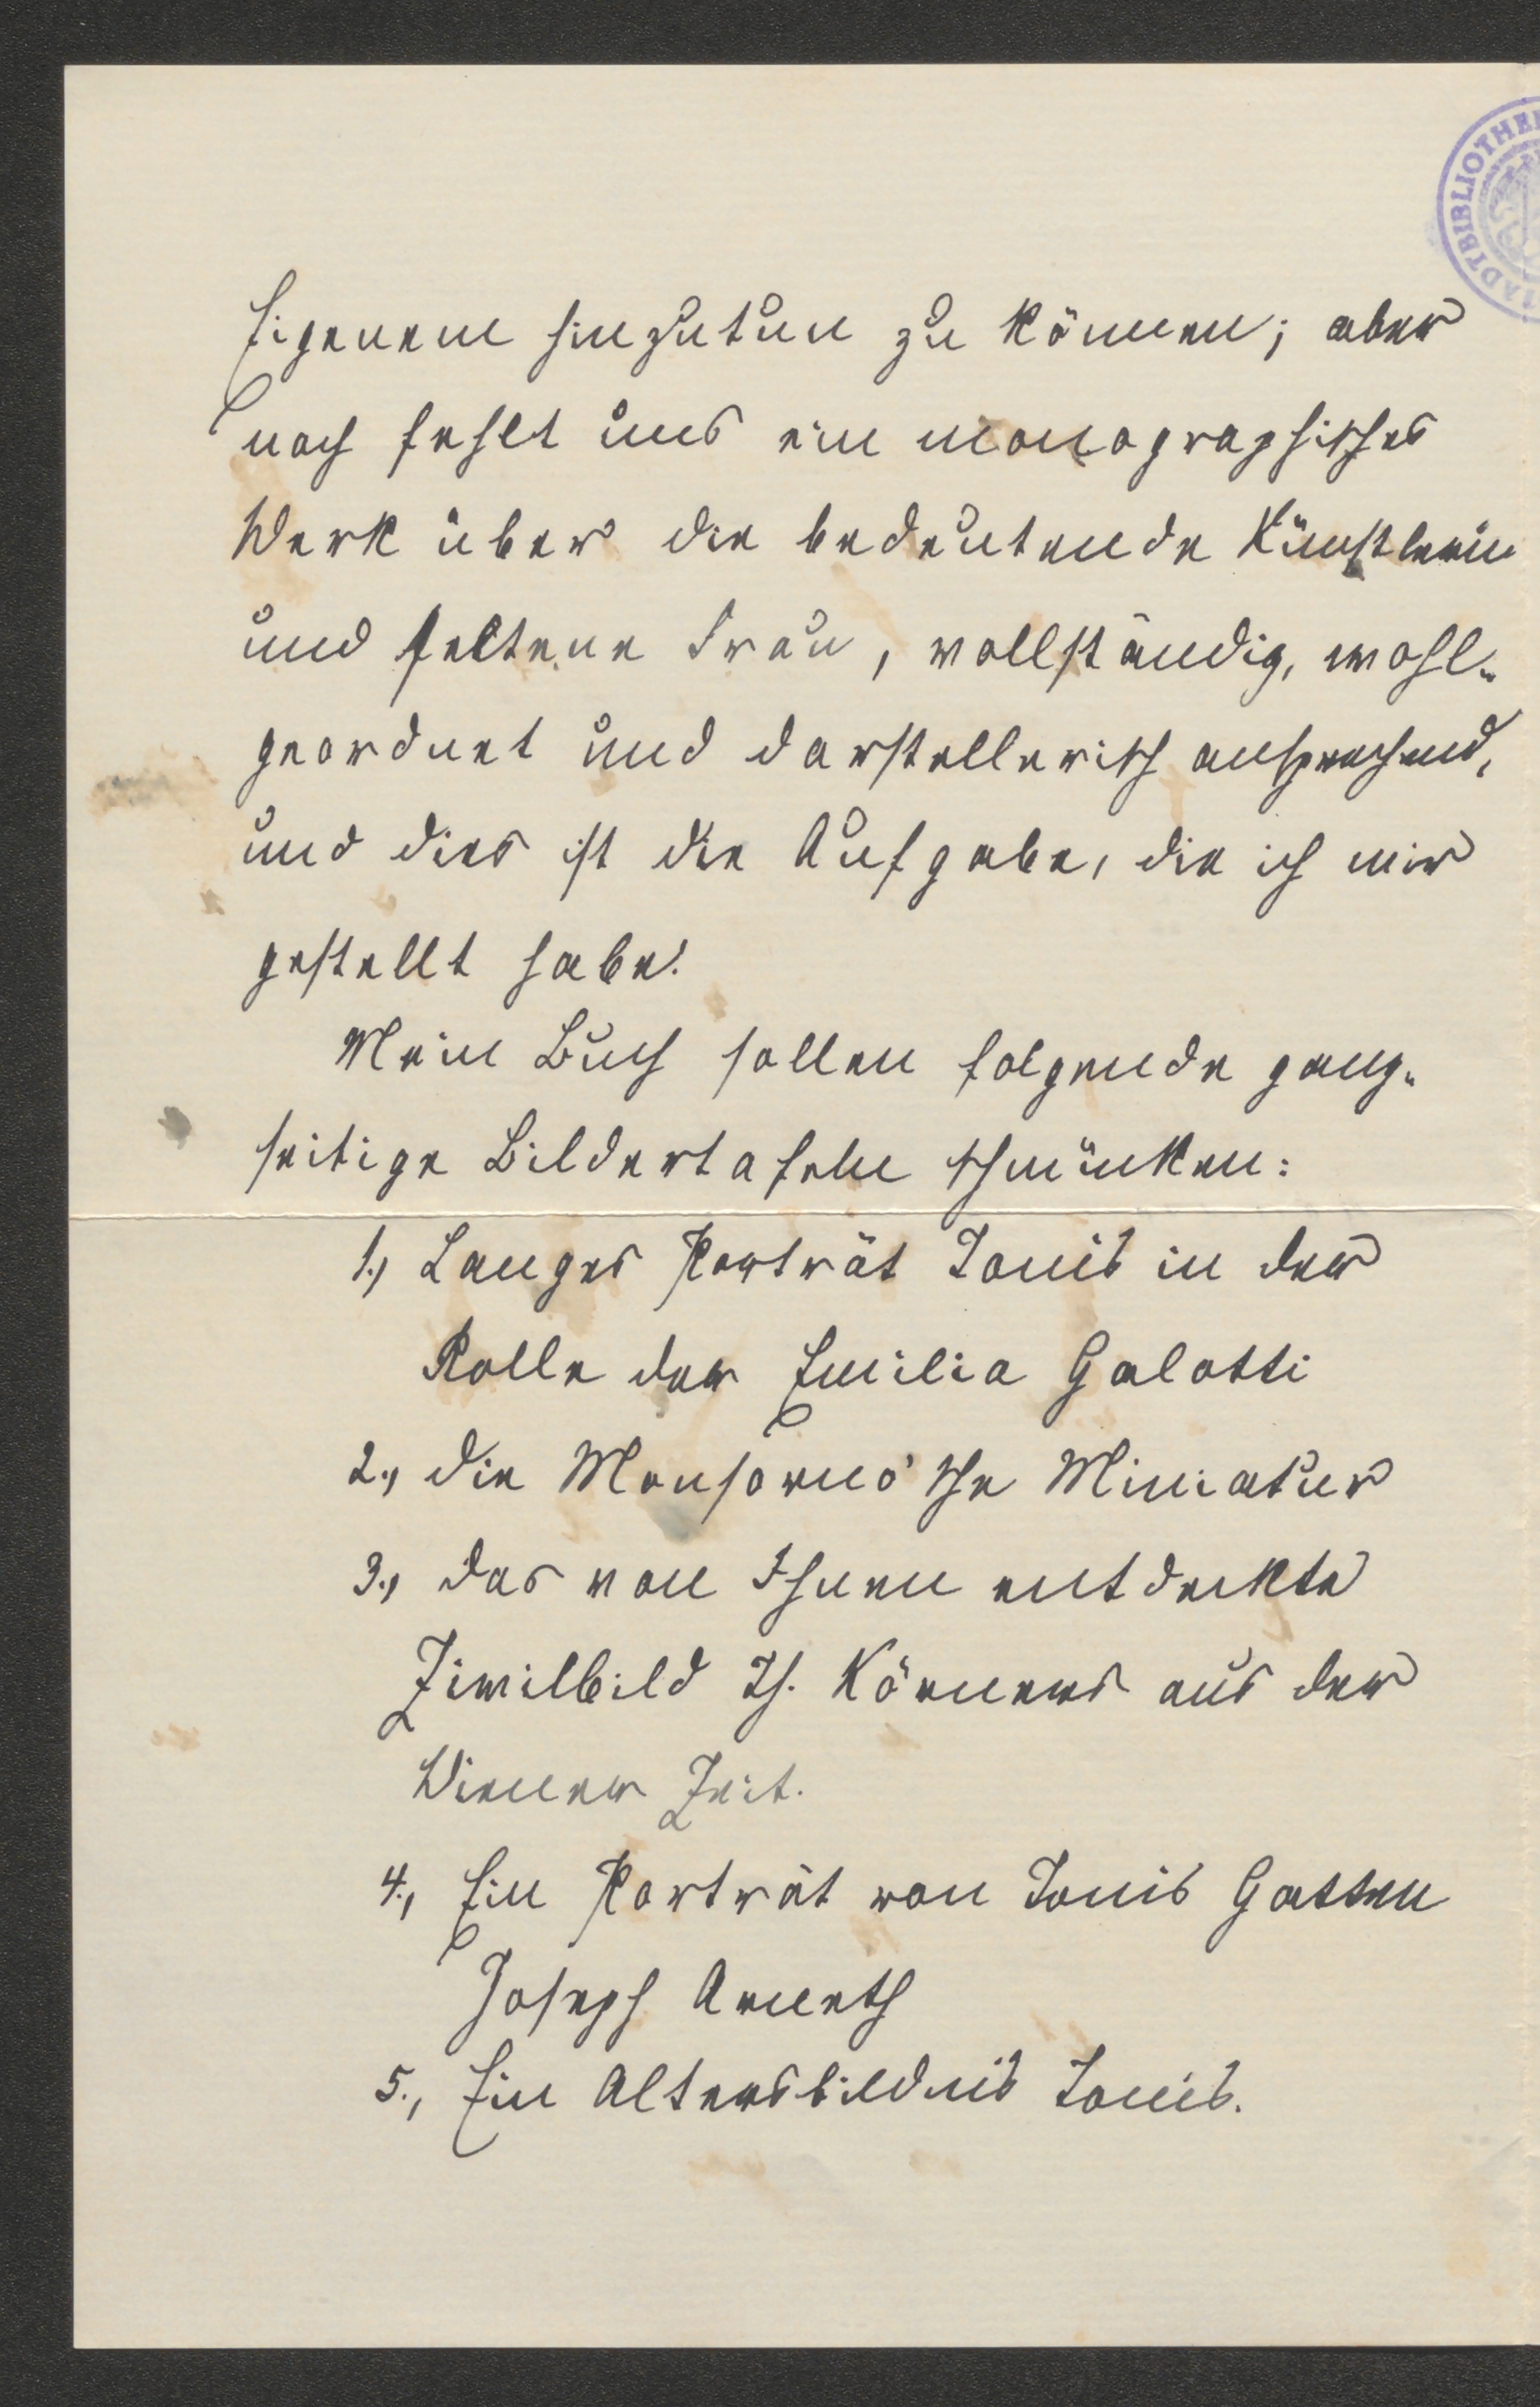 STADTBIBLIOTHEK
Eigenem hinzutun zu können; aber
noch fehlt uns ein monographisches
Werk über die bedeutende Künstlerin
und seltene Frau, vollständig, wohl-
geordnet und darstellerisch ansprechend,
und dies ist die Aufgabe, die ich mir
gestellt habe.
Mein Buch sollen folgende ganz-
seitige Bildertafeln schmücken:
1., Langes Porträt Tonis in der
Rolle der Emilia Galotti
2., die Monsorno'sche Miniatur
3., das von Ihnen entdeckte
Zivilbild Th. Körners aus der
Wiener Zeit.
4., Ein Porträt von Tonis Gatten
Joseph Arneth
5., Ein Altersbildnis Tonis.